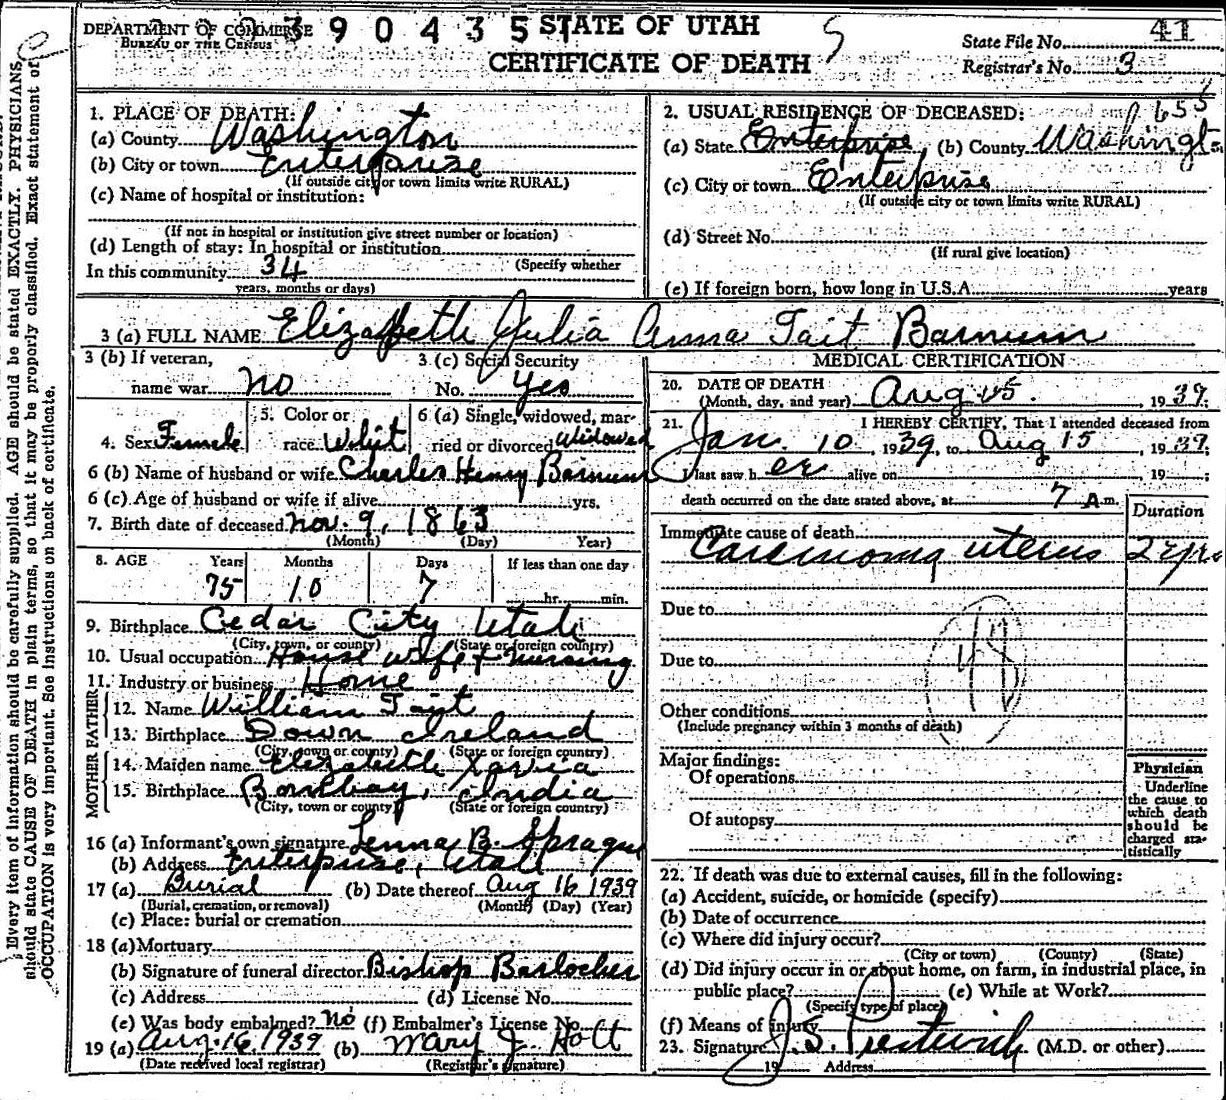 Every item of information should be carefully supplied. AGE should be stated EXACTLY. PHYSICIANS
should state CAUSE OF DEATH in plain terms, so that it may be properly classified. Exact statement of
OCCUPATION is very important. See instructions on back of certificate.
DEPARTMENT OF COMMERCE
BUREAU OF THE CENSUS
390435
STATE OF UTAH
CERTIFICATE OF DEATH
State File No. 41
Registrar's No. 3
1. PLACE OF DEATH:
(a) County Washington
(b) City or town Enterprise
(If outside city or town limits write RURAL)
(c) Name of hospital or institution:
(If not in hospital or institution give street number or location)
(d) Length of stay: In hospital or institution
(Specify whether
In this community 34
years, months or days)
2. USUAL RESIDENCE OF DECEASED:
(a) State Enterprise, (b) County Washingt
(c) City or town Enterprise
(If outside city or town limits write RURAL)
(d) Street No.
(If rural give location)
(e) If foreign born, how long in U.S.A. years
3 (a) FULL NAME Elizabeth Julia Anna Tait Barnum
3 (b) If veteran,
name war no
3. (c) Social Security
No. yes
4. Sex Female
5. Color or
race Whit
6 (a) Single, widowed, mar-
ried or divorced Widowed
6 (b) Name of husband or wife Charles Henry Barnum
6 (c) Age of husband or wife if alive yrs.
7. Birth date of deceased Nov. 9, 1863
(Month) (Day) Year)
8. AGE Years Months Days If less than one day
75 10 7 hr. min.
9. Birthplace Cedar City Utah
(City, town, or county) (State or foreign country)
10. Usual occupation House wife + Nursing
11. Industry or business Home
FATHER
12. Name William Tait
13. Birthplace Down Ireland
(City, town or county) (State or foreign country)
MOTHER
14. Maiden name Elizabeth Xavia
15. Birthplace Bombay, India
(City, town or county) (State or foreign country)
16 (a) Informant's own signature Lenna B. Sprague
(b) Address Enterprise, Utah
17 (a) Burial (b) Date thereof Aug 16 1939
(Burial, cremation, or removal) (Month) (Day) (Year)
(c) Place: burial or cremation
18 (a) Mortuary
(b) Signature of funeral director Bishop Barlocher
(c) Address (d) License No.
(e) Was body embalmed? no (f) Embalmer's License No.
19 (a) Aug. 16, 1939 (b) Mary J. Holt
(Date received local registrar) (Registrar's signature)
MEDICAL CERTIFICATION
20. DATE OF DEATH
(Month, day, and year) Aug 15, 1939.
21. I HEREBY CERTIFY, That I attended deceased from
Jan. 10, 1939, to Aug 15, 1939;
I last saw h er alive on , 19 ;
death occurred on the date stated above, at 7 A m.
Duration
Immediate cause of death
Carcinoma uterus 2 yrs
Due to
48
Due to
Other conditions
(Include pregnancy within 3 months of death)
Major findings:
Of operations
Of autopsy
Physician
Underline
the cause to
which death
should be
charged sta-
tistically
22. If death was due to external causes, fill in the following:
(a) Accident, suicide, or homicide (specify)
(b) Date of occurrence
(c) Where did injury occur?
(City or town) (County) (State)
(d) Did injury occur in or about home, on farm, in industrial place, in
public place? (e) While at Work?
(Specify type of place)
(f) Means of injury
23. Signature J. S. Prestwich (M.D. or other)
19 Address